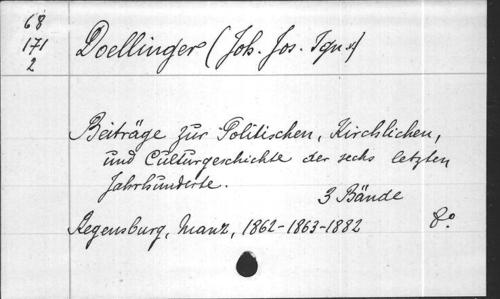 68
171
2
Doellinger (Joh. Jos. Ign.)
Beiträge zur Politischen, Kirchlichen,
und Culturgeschichte der sechs letzten
Jahrhunderte.
3 Bände
Regensburg, Manz, 1862-1863-1882 8º